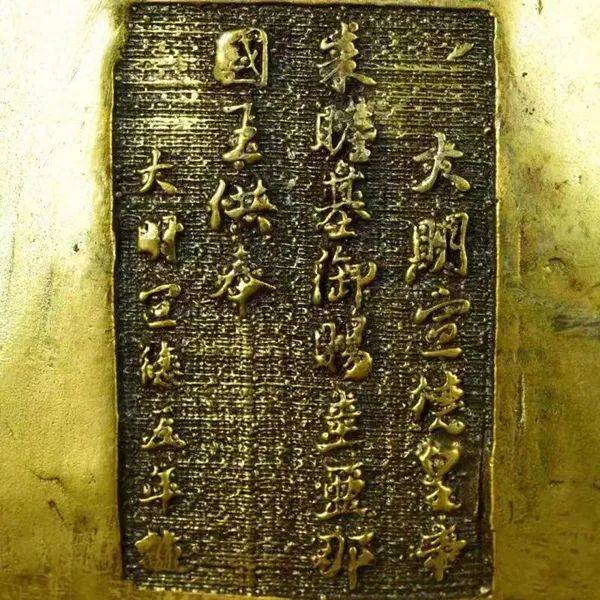 大明宣德皇帝
朱瞻基御賜
國王供奉
大明宣德五年